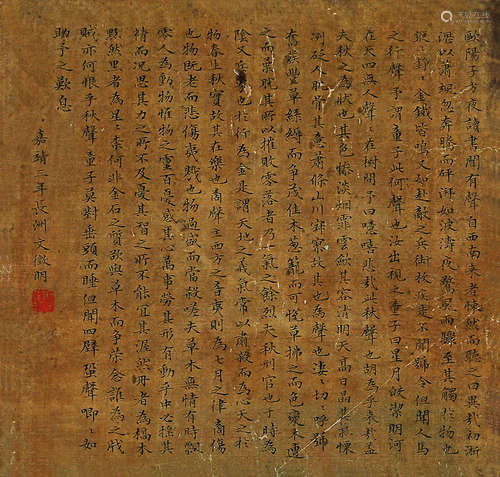 歐陽子方夜讀書聞有聲自西南來者悚然而聽之曰異哉初淅
瀝以蕭颯忽奔騰而砰湃如波濤夜驚風雨驟至其觸於物也
鏦〻錚〻金鐵皆鳴又如赴敵之兵銜枚疾走不聞號令但聞人馬
之行聲予謂童子此何聲也汝出視之童子曰星月皎潔明河
在天四無人聲〻在樹間予曰噫嘻悲哉此秋聲也胡為乎來哉盖
夫秋之為狀也其色慘淡烟霏雲斂其容清明天高日晶其氣慄
冽砭人肌骨其意蕭條山川寂寥故其為聲也淒〻切〻呼號
奮發豐草綠縟而争茂佳木葱籠而可悅草拂之而色變木遭
之而葉脫其所以摧敗零落者乃一氣之餘烈夫秋刑官也于時為
陰又兵象也於行為金是謂天地之義氣常以肅殺而為心天之於
物春生秋實故其在樂也商聲主西方之音夷則為七月之律商傷
也物既老而悲傷夷戮也物過盛而當殺嗟夫草木無情有時飄
零人為動物惟物之靈百憂感其心萬事勞其形有動乎中必搖其
精而况思其力之所不及憂其智之所不能宜其渥然丹者為槁木
黟然黑者為星〻奈何非金石之質欲與草木而争榮念誰為之戕
賊亦何恨乎秋聲童子莫對垂頭而睡但聞四壁蛩聲唧〻如
助予之歎息
嘉靖三年長洲文徵明